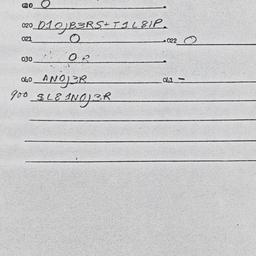 010 O
020 D1OJB3RS+T1L81P.
021 O 022 O
030 O R
060 ANOJ3R 061 -
900 SL81NOJ3R